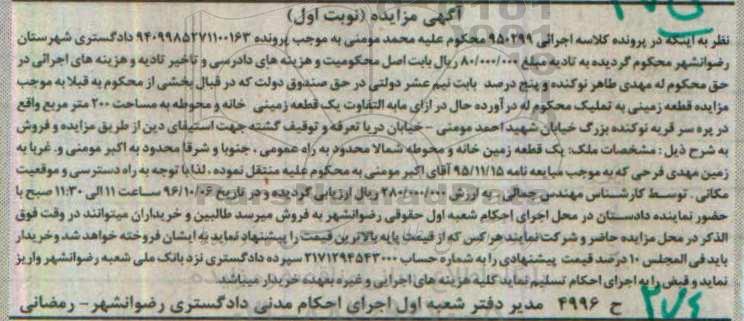 آگهی مزایده (نوبت اول)
نظر به اینکه در پرونده کلاسه اجرائی ۹۵۰۲۹۹ محکوم علیه محمد مومنی به موجب پرونده ۹۴۰۹۹۸۵۲۷۱۱۰۰۱۶۳ دادگستری شهرستان
رضوانشهر محکوم گردیده به تادیه مبلغ ۸۰/۰۰۰/۰۰۰ ریال بابت اصل محکومیت و هزینه های دادرسی و تاخیر تادیه و هزینه های اجرائی در
حق محکوم له مهدی طاهر نوکنده و پنج درصد بابت نیم عشر دولتی در حق صندوق دولت که در قبال بخشی از محکوم به قبلا به موجب
مزایده قطعه زمینی به تملیک محکوم له درآورده حال در ازای مابه التفاوت یک قطعه زمینی خانه و محوطه به مساحت ۲۰۰ متر مربع واقع
در پره سر قریه نوکنده بزرگ خیابان شهید احمد مومنی – خیابان دریا تعرفه و توقیف گشته جهت استیفای دین از طریق مزایده و فروش
به شرح ذیل : مشخصات ملک: یک قطعه زمین خانه و محوطه شمالا محدود به راه عمومی ، جنوبا و شرقا محدود به اکبر مومنی و غربا به
زمین مهدی فرحی که به موجب مبایعه نامه ۹۵/۱۱/۱۵ آقای اکبر مومنی به محکوم علیه منتقل نموده ، لذا با توجه به راه دسترسی و موقعیت
مکانی . توسط کارشناس مهندس جمالی . به ارزش ۲۸۰/۰۰۰/۰۰۰ ریال ارزیابی گردیده و در تاریخ ۹۶/۱۰/۰۶ ساعت ۱۱ الی ۱۱:۳۰ صبح با
حضور نماینده دادستان در محل اجرای احکام شعبه اول حقوقی رضوانشهر به فروش میرسد طالبین و خریداران میتوانند در وقت فوق
الذکر در محل مزایده حاضر و شرکت نمایند هر کس که از قیمت پایه بالاترین قیمت را پیشنهاد نماید به ایشان فروخته خواهد شد و خریدار
باید فی المجلس ۱۰ درصد قیمت پیشنهادی را به شماره حساب ۲۱۷۱۲۹۴۵۴۳۰۰۰ سپرده دادگستری نزد بانک ملی شعبه رضوانشهر واریز
نماید و قبض را به اجرای احکام تسلیم نماید کلیه هزینه های اجرایی و غیره بعهده خریدار میباشد
ح ۴۹۹۶ مدیر دفتر شعبه اول اجرای احکام مدنی دادگستری رضوانشهر – رمضانی